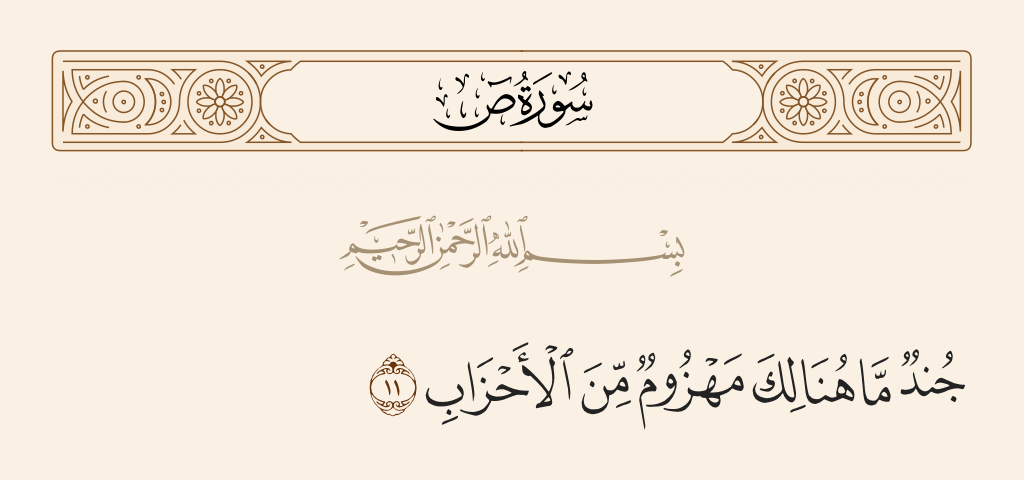 سُورَةُ صٓ
بِسْمِ ٱللَّهِ ٱلرَّحْمَٰنِ ٱلرَّحِيمِ
جُندٌ مَّا هُنَالِكَ مَهْزُومٌ مِّنَ ٱلْأَحْزَابِ ١١